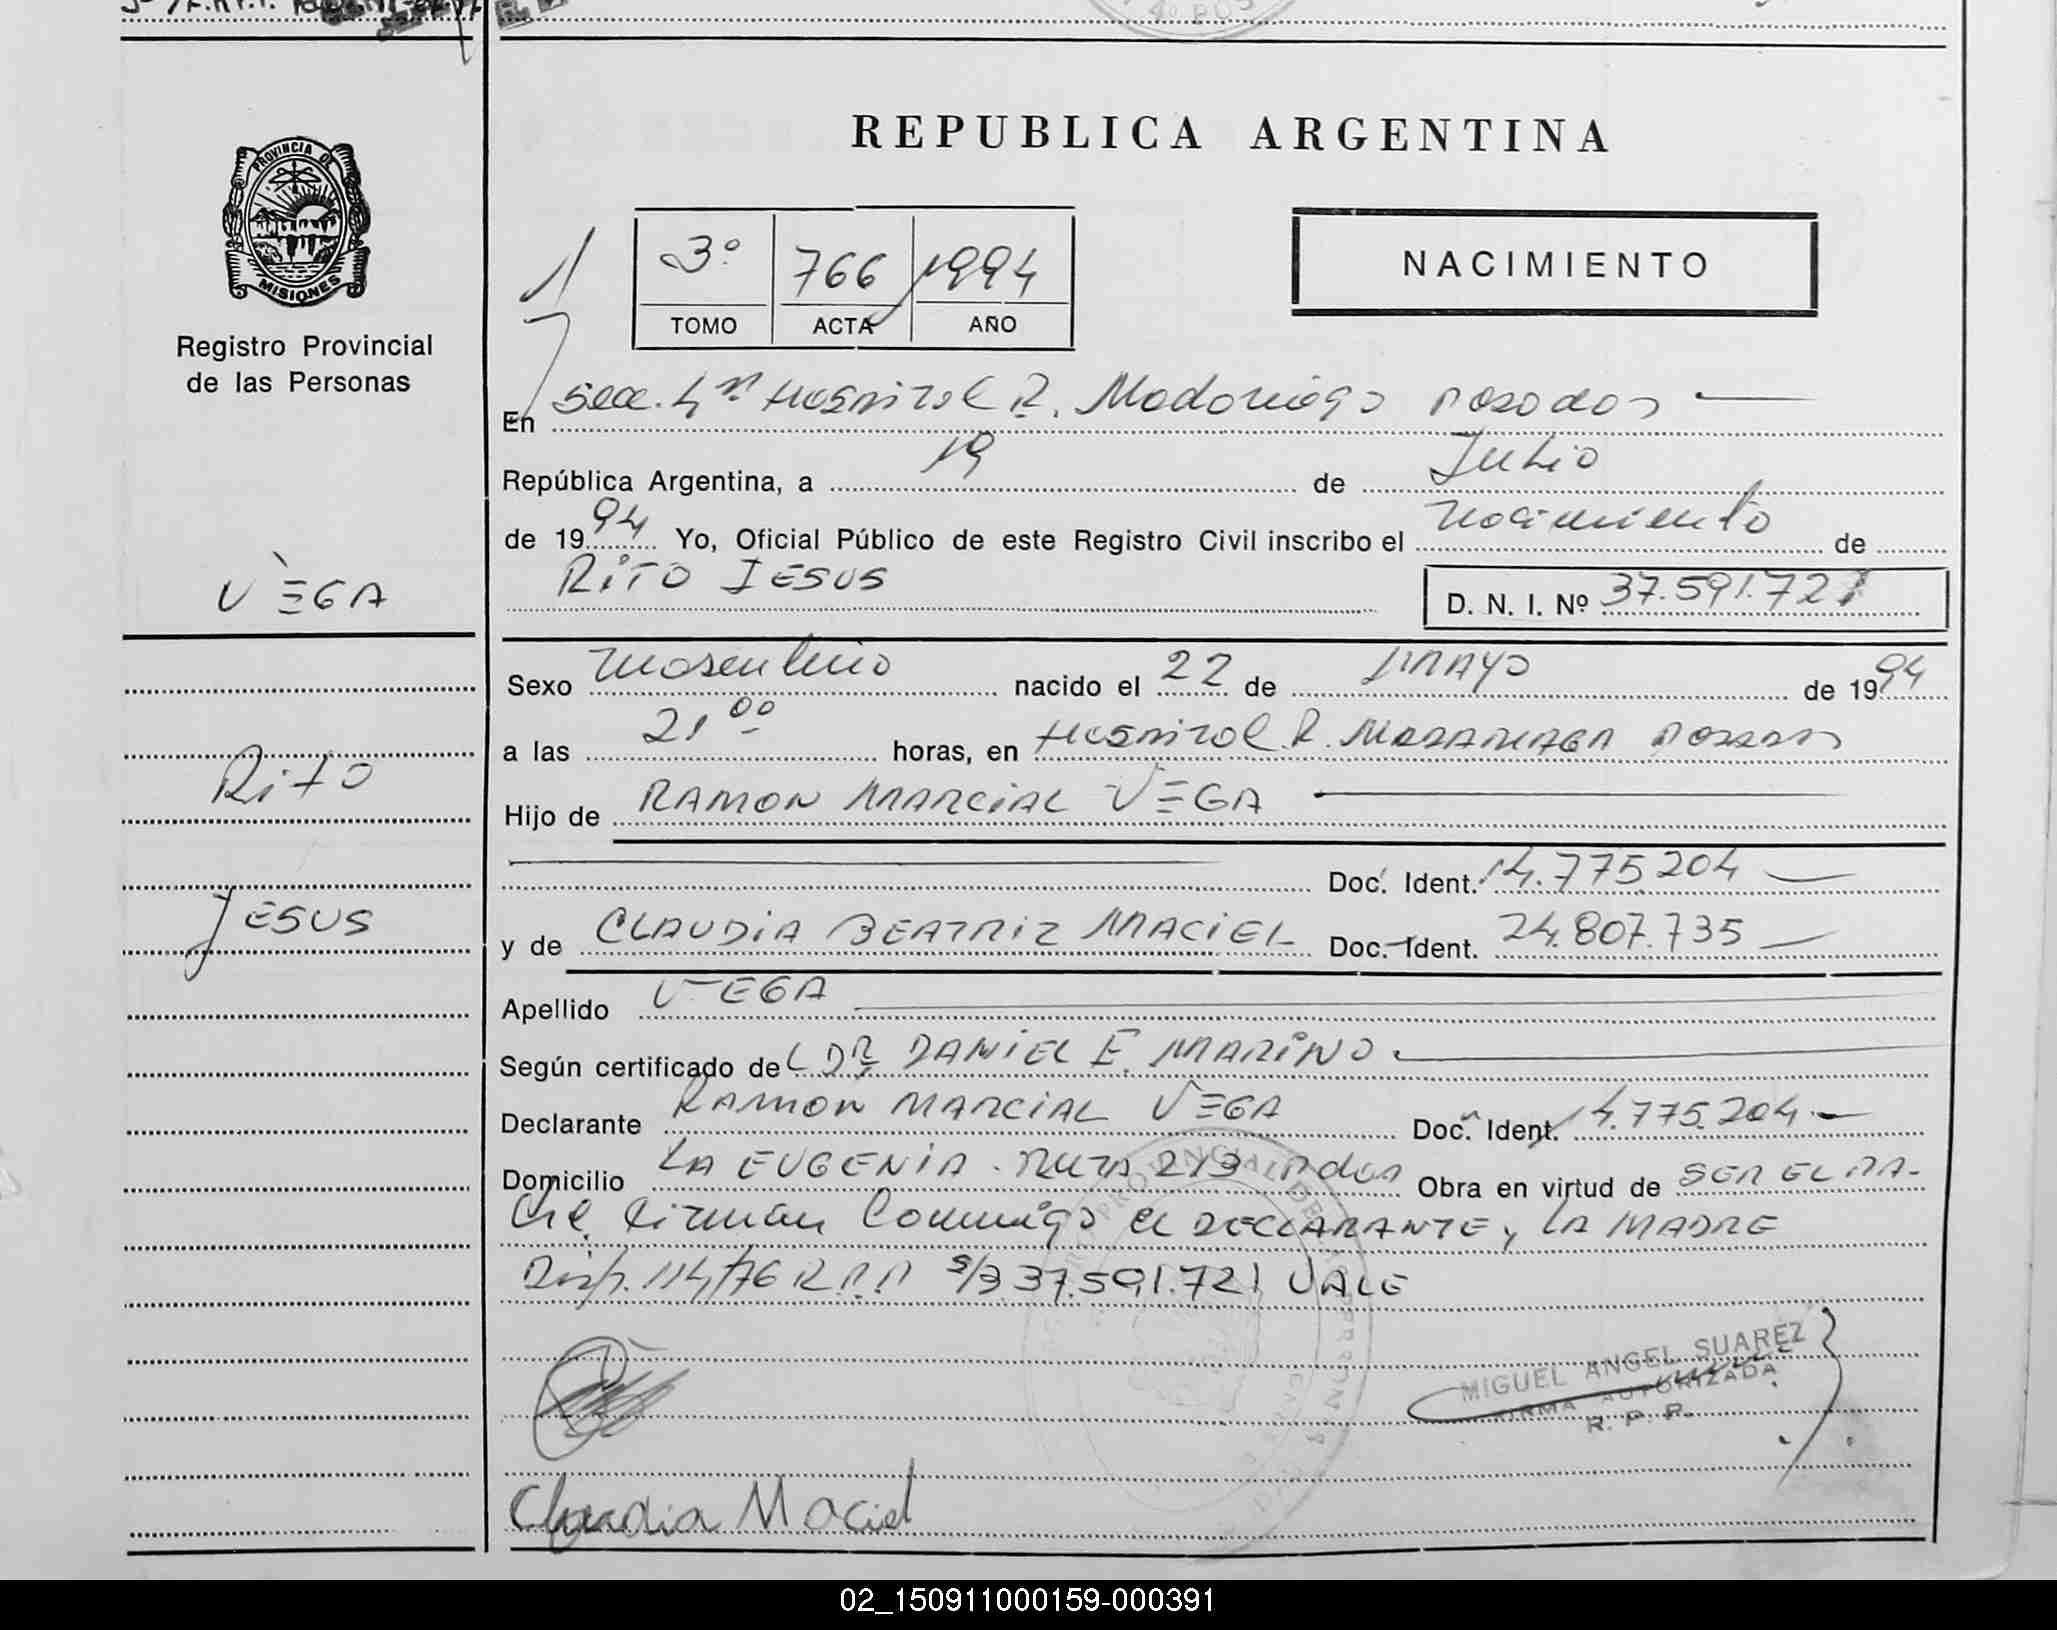 REPUBLICA ARGENTINA
PROVINCIA DE
MISIONES
Registro Provincial
de las Personas
3º 766 1994
TOMO ACTA AÑO
NACIMIENTO
En Secc. 4ª Hospital R. Madariaga Posadas
República Argentina, a 19 de Julio
de 1994 Yo, Oficial Público de este Registro Civil inscribo el nacimiento de
RITO JESUS
D. N. I. Nº 37.591.721
VEGA
Rito
JESUS
Sexo masculino nacido el 22 de MAYO de 1994
a las 21 00 horas, en Hospital R. MADARIAGA Posadas
Hijo de RAMON MARCIAL VEGA
Doc. Ident. 14.775.204
y de CLAUDIA BEATRIZ MACIEL Doc. Ident. 24.807.735
Apellido VEGA
Según certificado de DR DANIEL E. MARINO
Declarante RAMON MARCIAL VEGA Doc. Ident. 14.775.204
Domicilio LA EUGENIA. RUTA 213 Pdas Obra en virtud de SER EL PA-
dre firman conmigo el DECLARANTE y LA MADRE
Disp. 114/76 R.P.P s/B 37.591.721 VALE
MIGUEL ANGEL SUAREZ
FIRMA AUTORIZADA
R. P. P.
Claudia Maciel
02_150911000159-000391